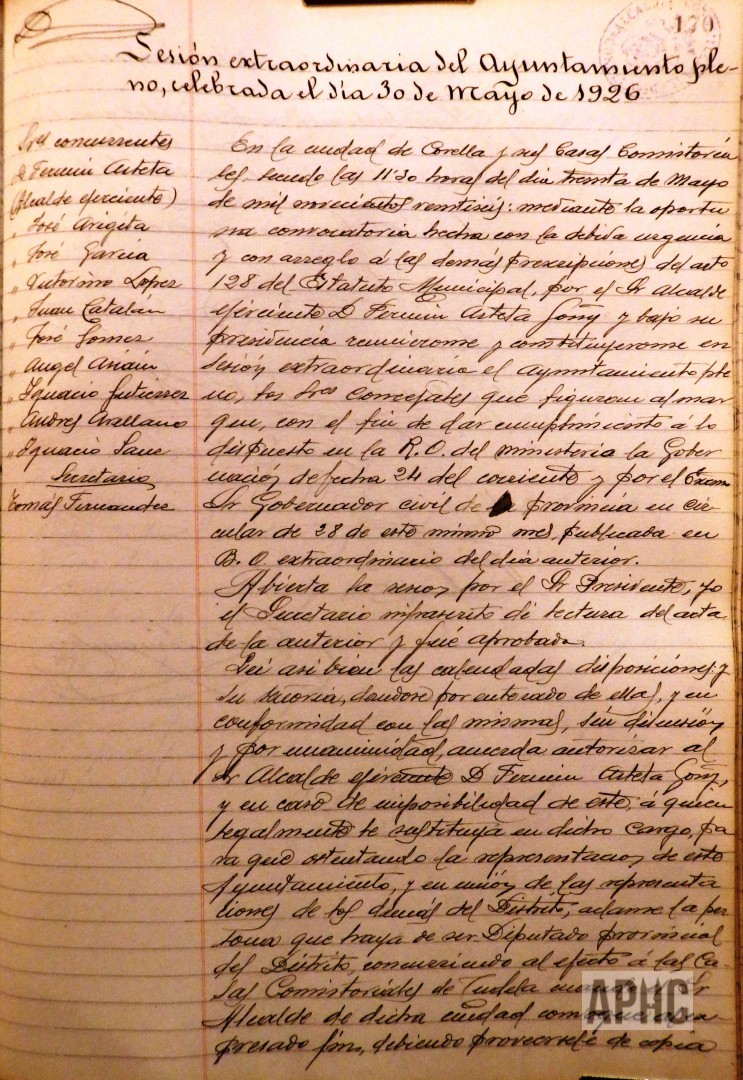 170
Sesión extraordinaria del Ayuntamiento ple-
no, celebrada el día 30 de Mayo de 1926
Sres concurrentes
D Fermin Arteta
(Alcalde ejerciente)
" José Arigita
" José Garcia
" Victorino Lopez
" Juan Catalán
" José Gomez
" Angel Ariáin
" Ignacio Gutierrez
" Andres Arellano
" Ignacio Sanz
Secretario
Tomás Fernandez
En la ciudad de Corella y sus Casas Consistoria
les, siendo las 11'30 horas del día treinta de Mayo
de mil novecientos veintiseis: mediante la oportu
na convocatoria hecha con la debida urgencia
y con arreglo á las demás prescripciones del arto
128 del Estatuto Municipal, por el Sr Alcalde
ejerciente D Fermin Arteta Goñy y bajo su
presidencia reunieronse y constituyeronse en
sesión extraordinaria el ayuntamiento ple
no, los Sres Concejales que figuran al mar
gen, con el fin de dar cumplimiento á lo
dispuesto en la R.O. del ministerio la Gober
nación de fecha 24 del corriente y por el Excmo
Sr Gobernador civil de la provincia en cir
cular de 28 de este mismo mes, publicada en
B. O. extraordinario del día anterior.
Abierta la sesion por el Sr Presidente, yo
el Secretario infrascrito di lectura del acta
de la anterior y fué aprobada.
Leí asi bien las calendadas disposiciones; y
Su Señoria, dandose por enterado de ellas, y en
conformidad con las mismas, sin discusión
y por unanimidad, acuerda autorizar al
Sr Alcalde ejerciente D Fermin Arteta Goñy,
y en caso de imposibilidad de este, á quien
legalmente le sustituya en dicho cargo, pa
ra que ostentando la representacion de este
Ayuntamiento, y en unión de las representa
ciones de los demás del Distrito, aclame la per
sona que haya de ser Diputado provincial
del Distrito, concurriendo al efecto á las Ca-
sas Consistoriales de Tudela Sr
Alcalde de dicha ciudad
presado fin, debiendo proveersele de copia
APHC